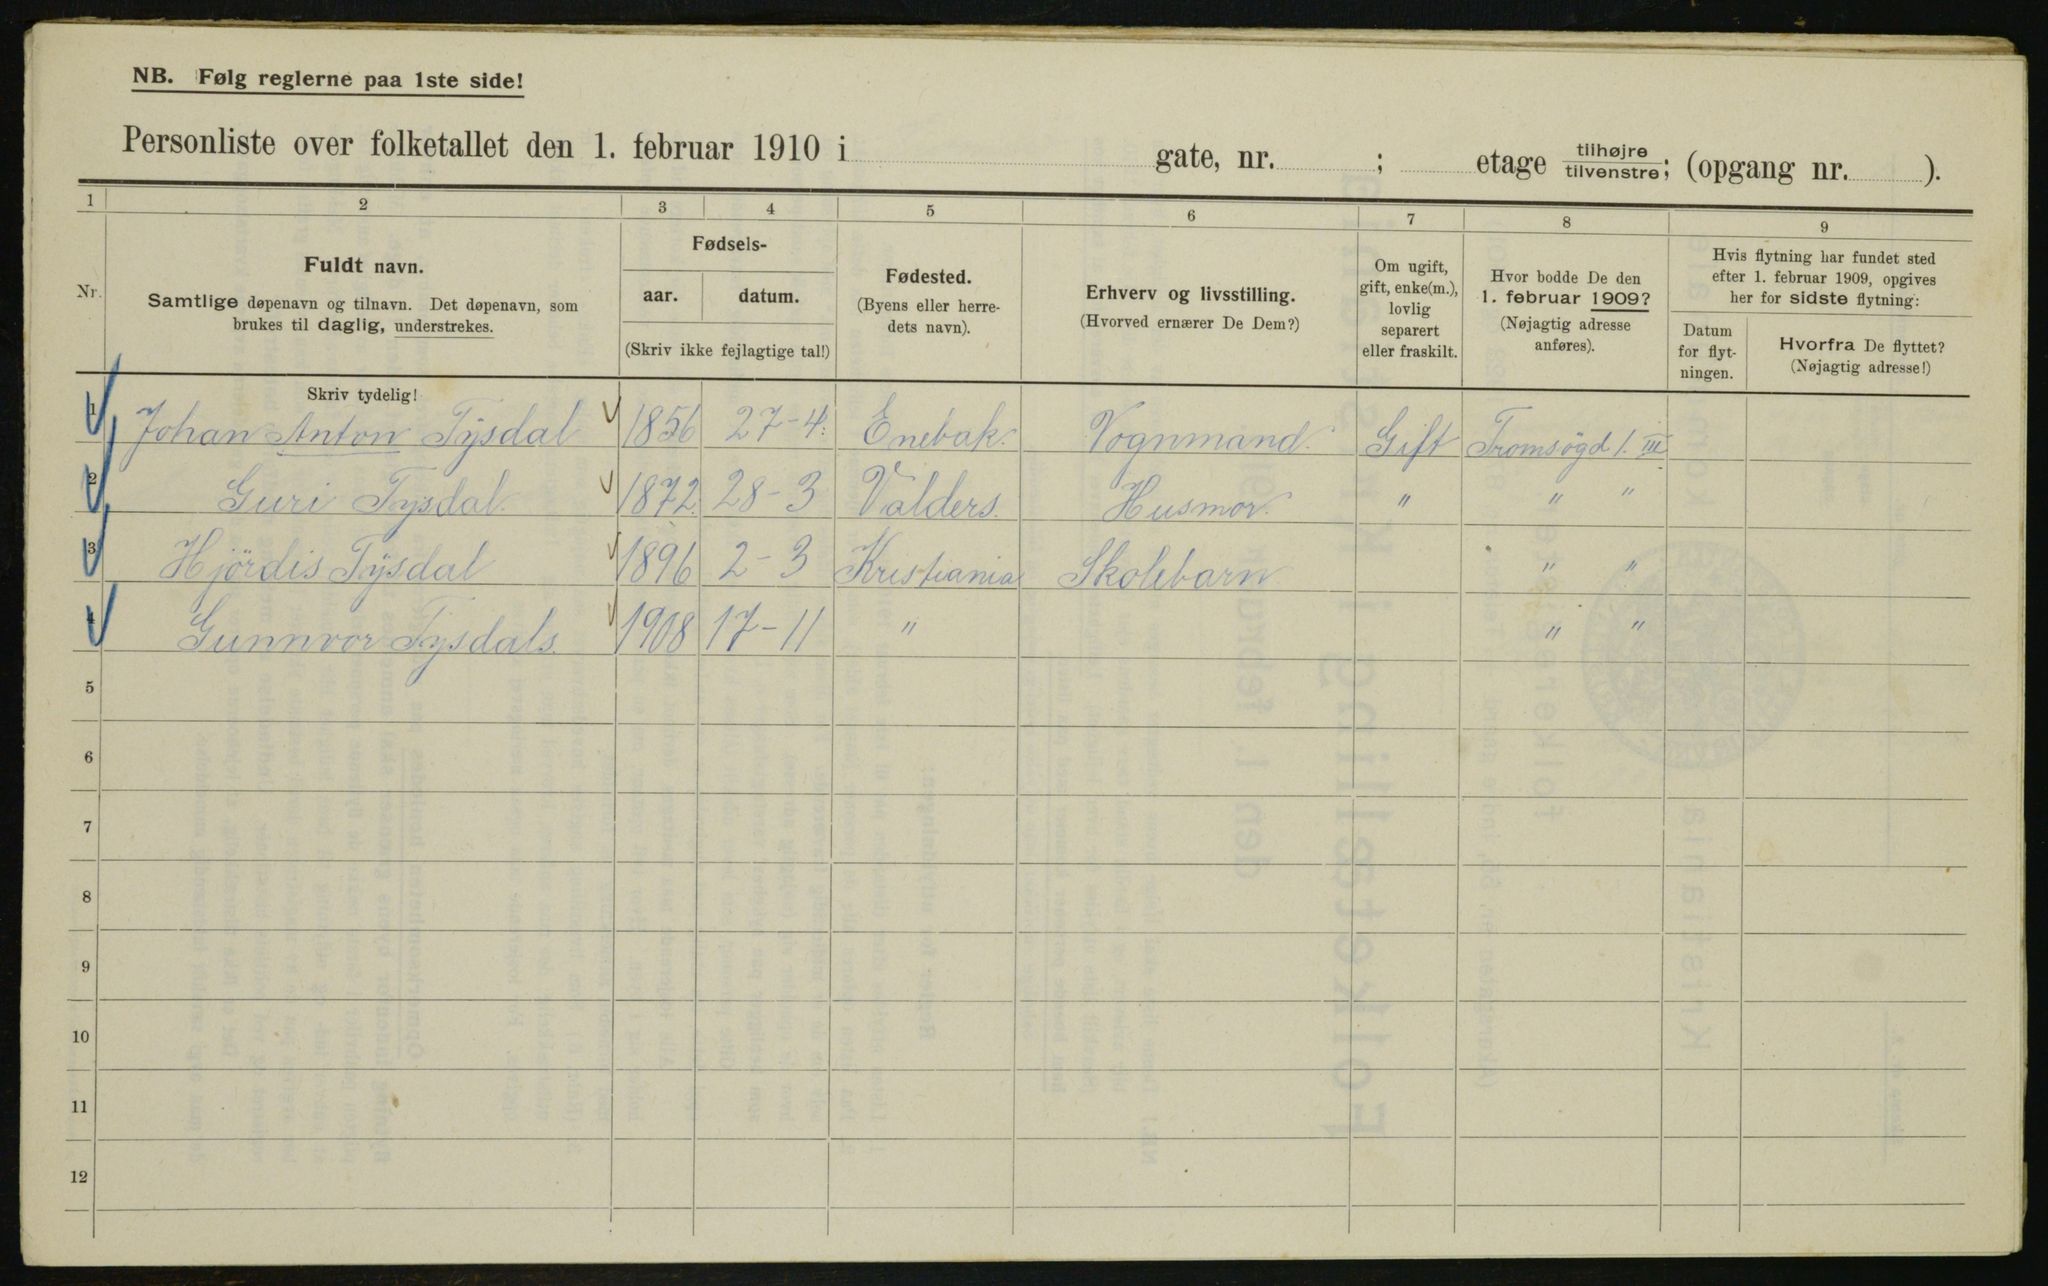 NB. Følg reglerne paa 1ste side!
Personliste over folketallet den 1. februar 1910 i gate, nr. ; etage tilhøjre/tilvenstre; (opgang nr. ).
1 2 3 4 5 6 7 8 9
Nr.
Fuldt navn.
Samtlige døpenavn og tilnavn. Det døpenavn, som
brukes til daglig, understrekes.
Fødsels-
aar. datum.
(Skriv ikke fejlagtige tal!)
Fødested.
(Byens eller herre-
dets navn).
Erhverv og livsstilling.
(Hvorved ernærer De Dem?)
Om ugift,
gift, enke(m.),
lovlig
separert
eller fraskilt.
Hvor bodde De den
1. februar 1909?
(Nøjagtig adresse
anføres).
Hvis flytning har fundet sted
efter 1. februar 1909, opgives
her for sidste flytning:
Datum
for flyt-
ningen.
Hvorfra De flyttet?
(Nøjagtig adresse!)
Skriv tydelig!
1 Johan Anton Tysdal 1856 27-4. Enebak. Vognmand. Gift Tromsögd 1. III
2 Guri Tysdal. 1872 28-3 Valders. Husmor. " " "
3 Hjördis Tysdal 1896 2-3 Kristiania Skolebarn " "
4 Gunnvor Tysdals. 1908 17-11 " " "
5
6
7
8
9
10
11
12